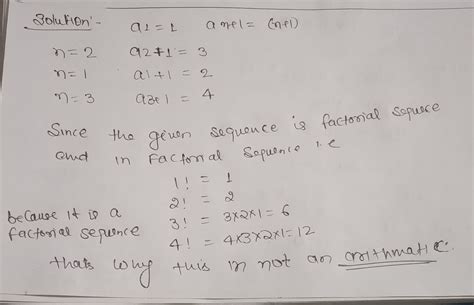 Solution:-  a1 = 1  an+1 = (n+1)
n=2  a2+1 = 3
n=1  a1+1 = 2
n=3  a3+1 = 4
Since the given sequence is factorial sequece
and in factorial sequence i.e
1! = 1
2! = 2
because it is a 3! = 3x2x1 = 6
factorial sequence 4! = 4x3x2x1 = 12
thats why this in not an arithmatic.